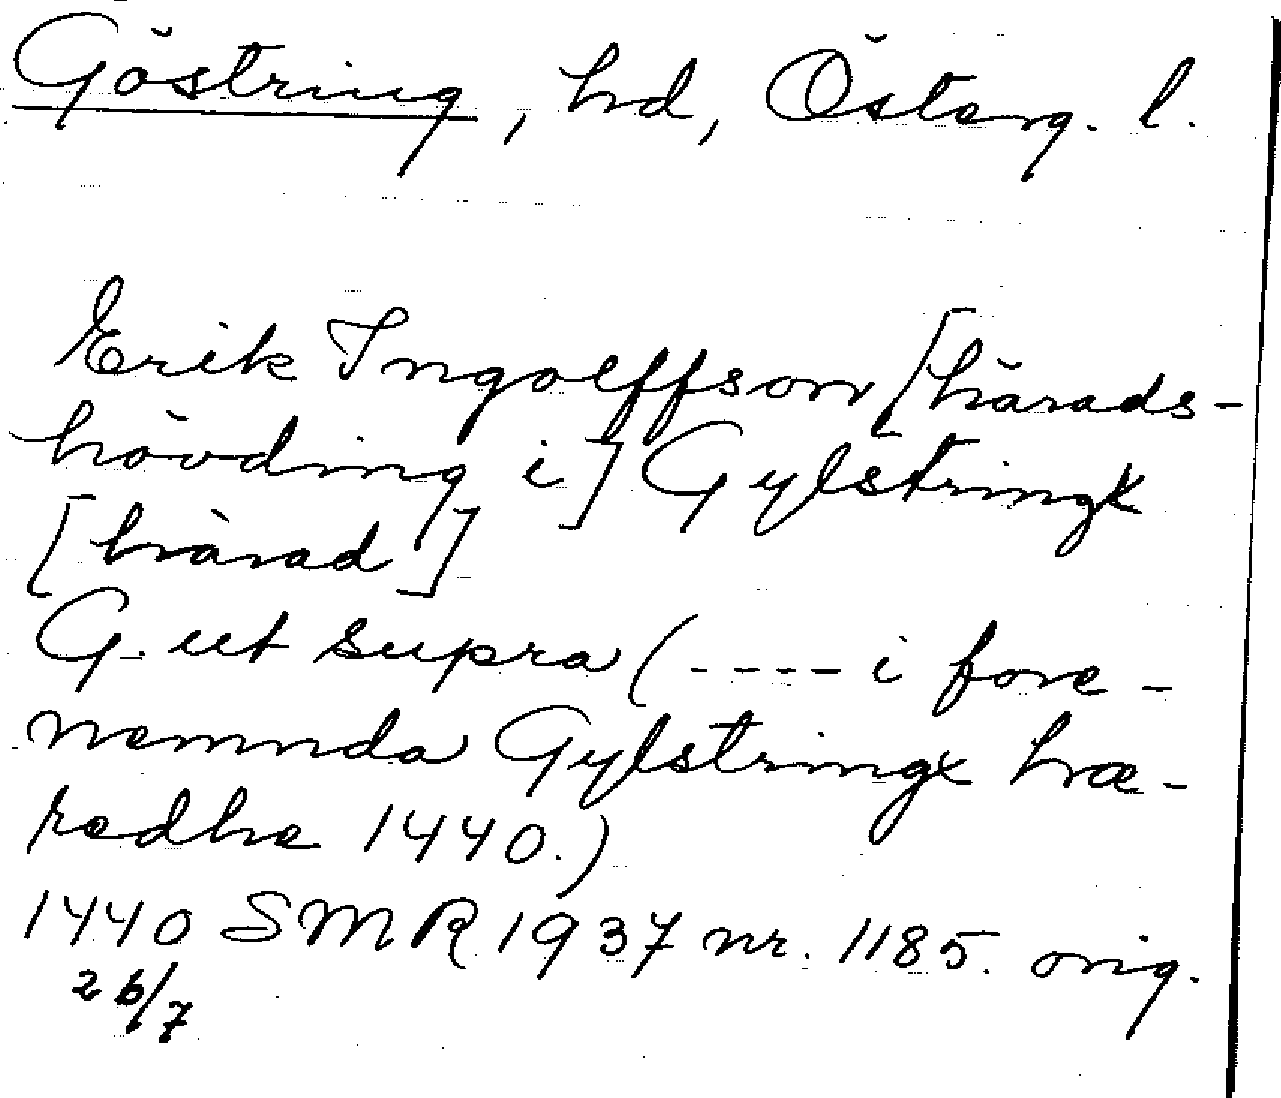 Göstring, hd, Österg. l.
Erik Ingolffson [härads-
hövding i] Gylstringx
[härad]
G. ut supra (---- i fore-
nemnda Gylstringx hræ-
redhe 1440.)
1440 SMR 1937 nr. 1185. orig.
26/7